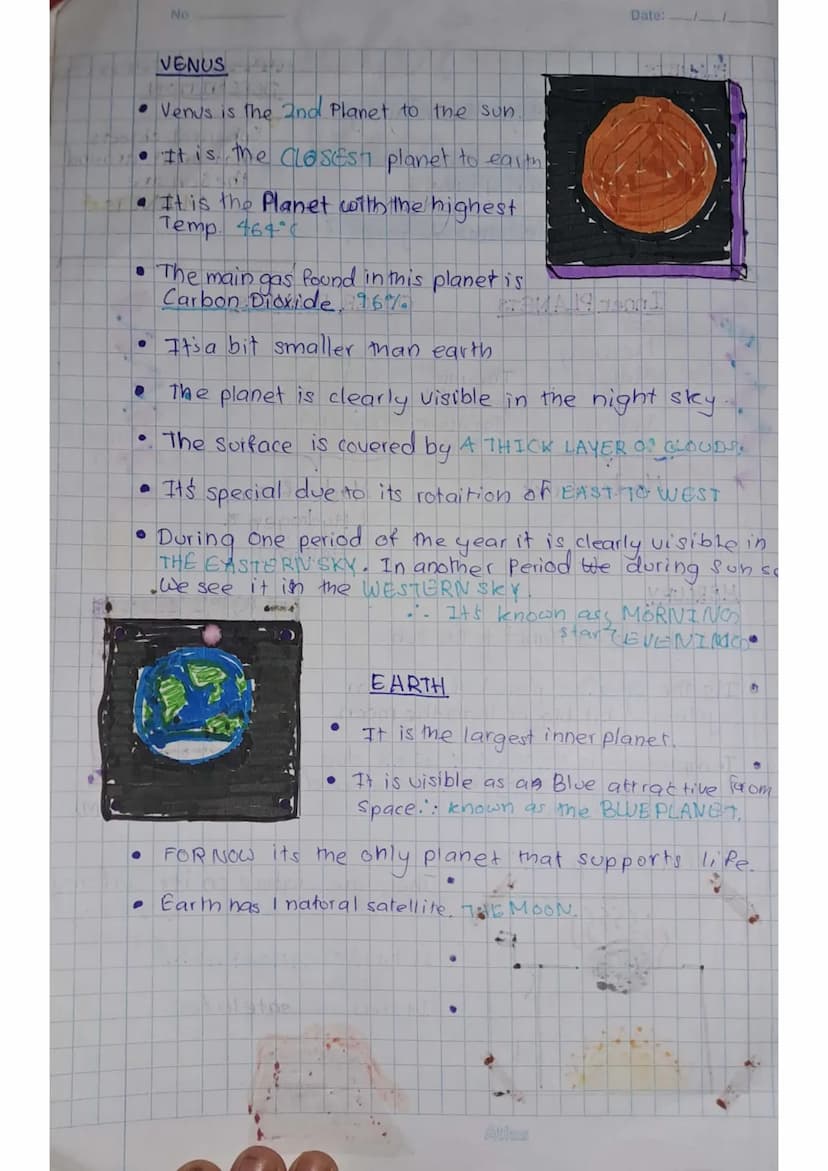 No
Date: __/__/__
VENUS
• Venus is the 2nd Planet to the sun
• It is the CLOSEST planet to earth
• It is the Planet with the highest
Temp 464°C
• The main gas found in this planet is
Carbon Dioxide, 96%
• It's a bit smaller than earth
• The planet is clearly visible in the night sky
• The surface is covered by A THICK LAYER OF CLOUDS.
• It's special due to its rotaition of EAST TO WEST
• During one period of the year it is clearly visible in
THE EASTERN SKY. In another Period the during Sun
We see it in the WESTERN SKY.
∴ Its known as MORNING
star EVENING
EARTH
• It is the largest inner planet.
• It is visible as an Blue attractive from
Space ∴ known as the BLUE PLANET.
• FOR NOW its the only planet that supports life.
• Earth has 1 natural satellite. THE MOON.
Atlas